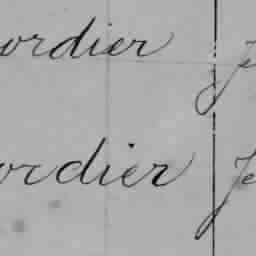 ordier Je
ordier Je